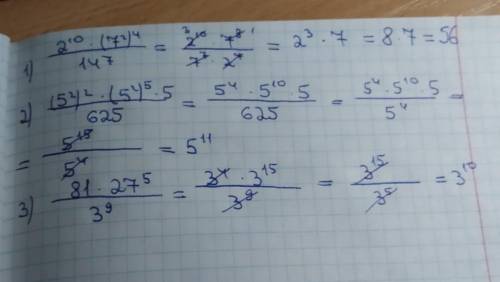 1) (2^10 · (7²)^4) / 14^7 = (2^10 · 7^8) / (7^7 · 2^7) = 2³ · 7 = 8 · 7 = 56
2) ((5²)² · (5²)^5 · 5) / 625 = (5^4 · 5^10 · 5) / 625 = (5^4 · 5^10 · 5) / 5^4 =
= 5^15 / 5^4 = 5^11
3) (81 · 27^5) / 3^9 = (3^4 · 3^15) / 3^9 = 3^15 / 3^5 = 3^10